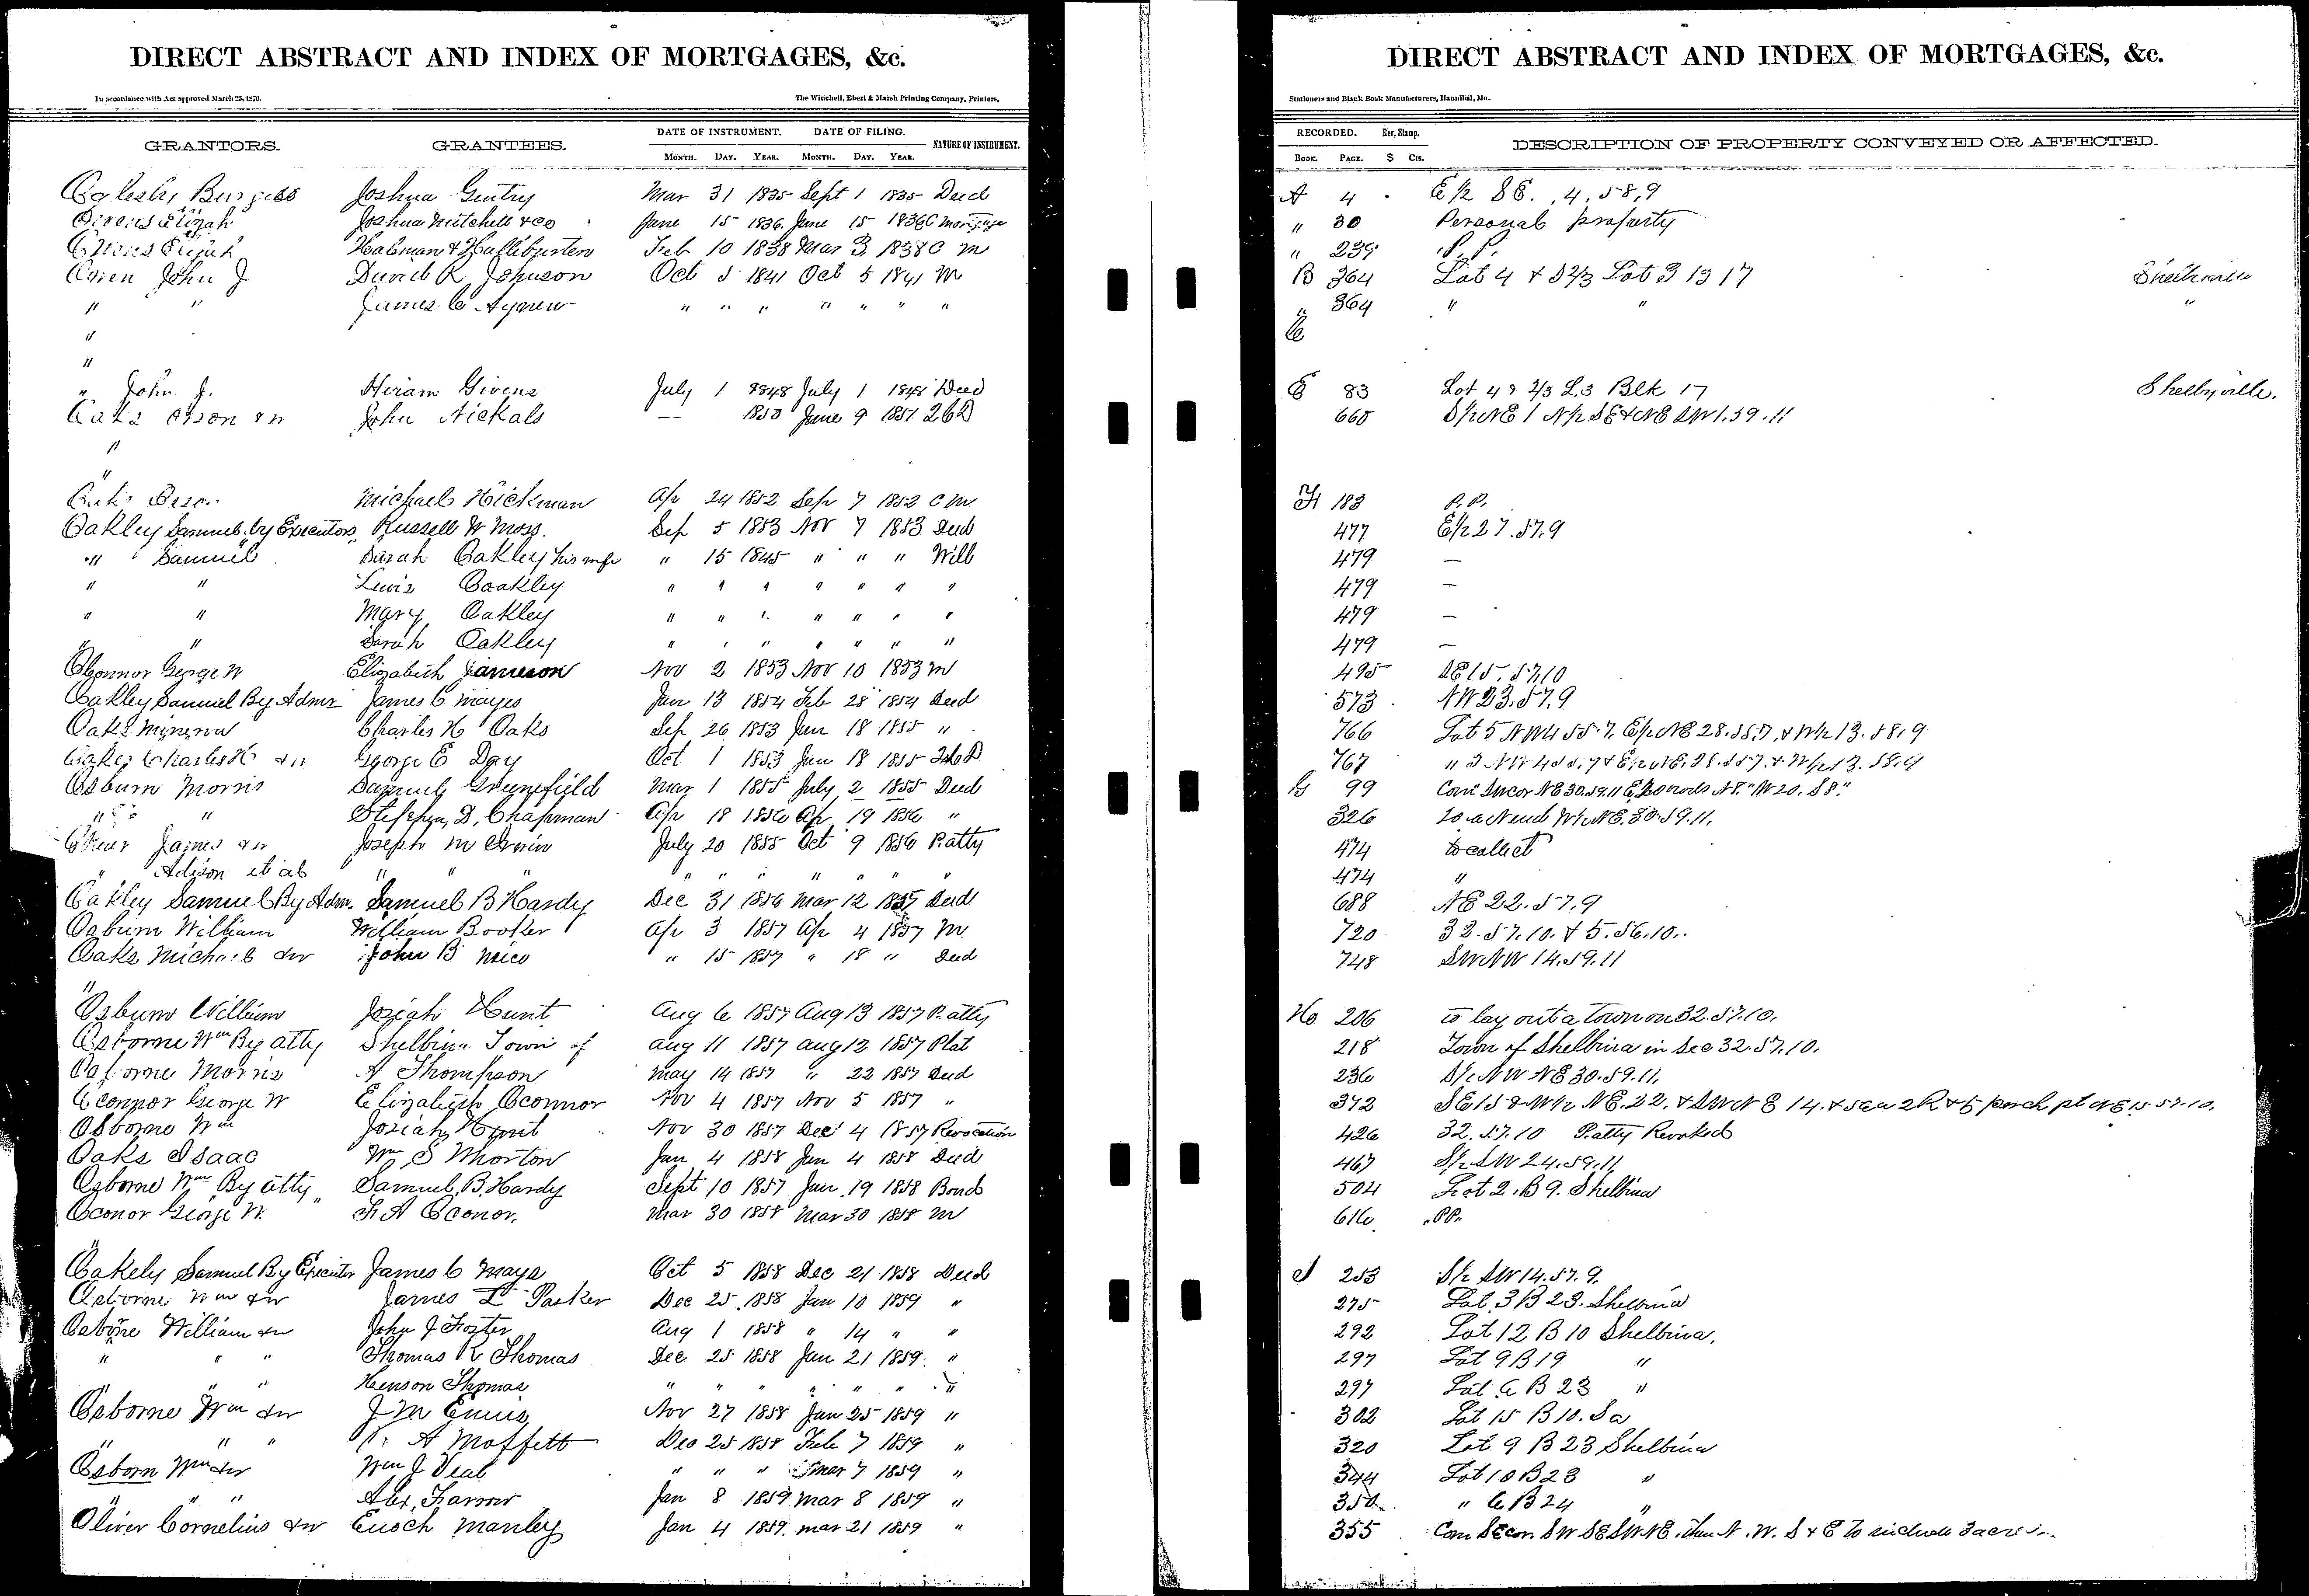 DIRECT ABSTRACT AND INDEX OF MORTGAGES, &c.
In accordance with Act approved March 25, 1870. The Winchell, Ebert & Marsh Printing Company, Printers,
GRANTORS. GRANTEES. DATE OF INSTRUMENT. DATE OF FILING. NATURE OF INSTRUMENT.
MONTH. DAY. YEAR. MONTH. DAY. YEAR.
Oglesby Burgess Joshua Gentry Mar 31 1835 Sept 1 1835 Deed
Elijah Joshua Mitchell & co June 15 1836 June 15 1836 C Mortgage
Owens Elijah & Halliburton Feb 10 1838 Mar 3 1838 C M
Owen John J David K Johnson Oct 5 1841 Oct 5 1841 M
" " James C Agnew " " " " " " "
"
"
" John J. Hiram Givens July 1 1848 July 1 1848 Deed
Oaks Orson & w John Nickals -- 1850 June 9 1851
"
"
Oaks Orson Michael Hickman Apr 24 1852 Sep 7 1852 C M
Oakley Samuel by Executors, Russell W Moss. Sep 5 1853 Nov 7 1853 Deed
" Samuel Sarah Oakley his wife " 15 1845 " " " Will
" " Lewis Coakley " " " " " " "
" " Mary Oakley " " " " " " "
" " Sarah Oakley " " " " " " "
Oconnor George W Elizabeth Jameson Nov 2 1853 Nov 10 1853 M
Oakley Samuel By Admr James C Mayes Jan 13 1854 Feb 28 1854 Deed
Oaks Minerva Charles H Oaks Sep 26 1853 Jan 18 1855 "
Oakes Charles H & w George E Day Oct 1 1853 Jan 18 1855
Osburn Morris Samuel Greenfield Mar 1 1855 July 2 1855 Deed
" " Stephen D. Chapman Apr 18 1856 Apr 19 1856 "
James & w Joseph M Irwin July 20 1855 Oct 9 1856 P. atty
" Adison et al " " " " " " " "
Oakley Samuel By Adm. Samuel B Hardy Dec 31 1856 Mar 12 1857 Deed
Osburn William William Booker Apr 3 1857 Apr 4 1857 M
Oaks Michael & w John B Price " 15 1857 " 18 " Deed
"
Osburn William Josiah Hunt Aug 6 1857 Aug 13 1857 P. atty
Osborne Wm By atty Shelbina Town of Aug 11 1857 Aug 12 1857 Plat
Osborne Morris A Thompson May 14 1857 " 22 1857 Deed
Oconnor George W Elizabeth Oconnor Nov 4 1857 Nov 5 1857 "
Osborne Wm Josiah Hunt Nov 30 1857 Dec 4 1857 Revocation
Oaks Isaac Wm S Whorton Jan 4 1858 Jan 4 1858 Deed
Osborne Wm By atty Samuel B. Hardy Sept 10 1857 Jan 19 1858 Bond
Oconor George W. F. A Oconor, Mar 30 1858 Mar 30 1858 M
"
Oakely Samuel By Executor James C Mays Oct 5 1858 Dec 21 1858 Deed
Osborne Wm & w James L Parker Dec 25 1858 Jan 10 1859 "
Osborne William & w John J Foster Aug 1 1858 " 14 " "
" " " Thomas R Thomas Dec 25 1858 Jan 21 1859 "
" " Henson Thomas " " " " " " "
Osborne Wm & w J M Ennis Nov 27 1858 Jan 25 1859 "
" " " A Moffett Dec 25 1858 Feb 7 1859 "
Osborn Wm & w Wm J Veal " " " Mar 7 1859 "
" " " Alex. Farmer Jan 8 1859 Mar 8 1859 "
Oliver Cornelius & w Enoch Manley Jan 4 1859 Mar 21 1859 "
DIRECT ABSTRACT AND INDEX OF MORTGAGES, &c.
Stationers and Blank Book Manufacturers, Hannibal, Mo.
RECORDED. Rev. Stamp. DESCRIPTION OF PROPERTY CONVEYED OR AFFECTED.
BOOK. PAGE. $ Cts.
A 4 E/2 SE. 4.58,9
" 30 Personal property
" 239 P.P.
B 364 Lot 4 & S 2/3 Lot 3 13 17 Shelbyville
" 364 " " "
C
E 83 Lot 4 & 2/3 L.3 Blk 17 Shelbyville.
660 S/2 NE 1 N/2 SE & NE SW 1.59.11
F 183 P.P.
477 E/2 27.57.9
479 —
479 —
479 —
479 —
495 SE 15.57.10
573 NW 23.57.9
766 Lot 5 NW 4 55.7. E/2 NE 28.55.7 & W/2 13.58.9
767
G 99
326
474 to collect
474 "
688 NE 22.57.9
720 32.57.10. & 5.56.10.
748 SW NW 14.59.11
H 206 to lay out a Town on 32.57.10.
218 Town of Shelbina in Sec 32.57.10.
236 S/2 NW NE 30.59.11.
372
426 32.57.10 P. atty Revoked
467 S/2 SW 24.59.11
504 Lot 2. B 9. Shelbina
616 P.P.
I 253 S/2 SW 14.57.9.
275 Lot 3 B 23. Shelbina
292 Lot 12 B 10 Shelbina.
297 Lot 9 B 19 "
297 Lot 6 B 23 "
302 Lot 15 B 10. Sa
320 Lot 9 B 23 Shelbina
344 Lot 10 B 23 "
350 " 6 B 24 "
355 Com SE cor. SW SE SW NE. then N. W. S & E to include 3 acres